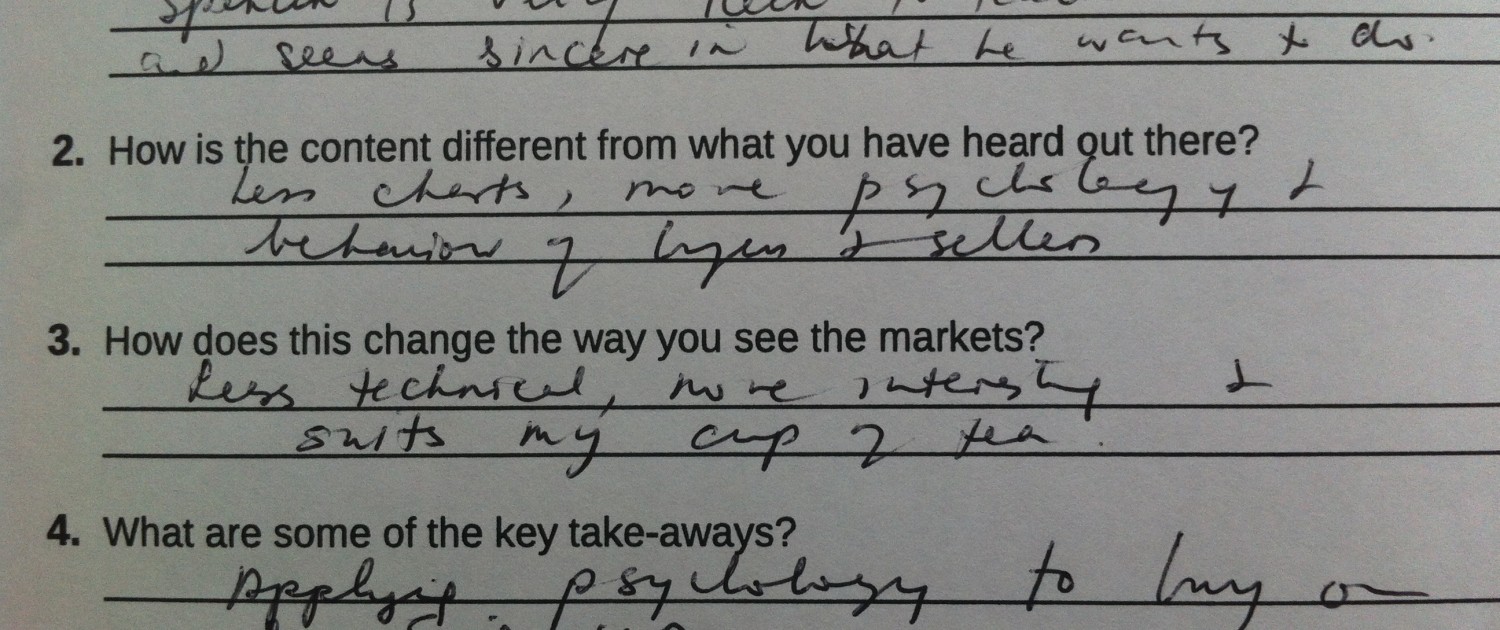 is very keen to
and seems sincere in what he wants to do.
2. How is the content different from what you have heard out there?
Less charts, more psychology &
behaviour of buyers & sellers
3. How does this change the way you see the markets?
Less technical, more interesting &
suits my cup of tea.
4. What are some of the key take-aways?
Applying psychology to buy or